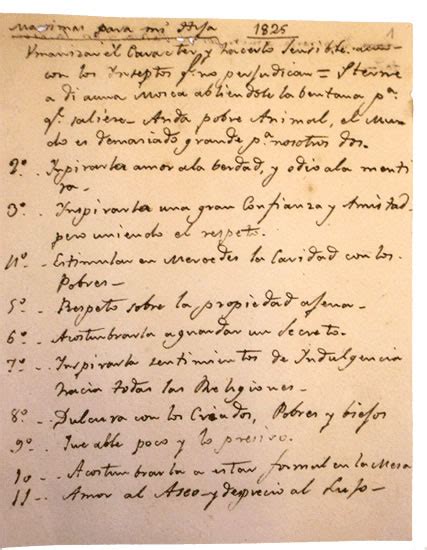 Maximas para mi Hija 1825
1
Umanizar el Caracter y hacerlo sensible aun
con los Insectos q.e no perjudican = Sterne
a dicho a una Mosca abriendole la bentana p.a
q.e saliese. Anda pobre Animal, el Mun
do es demaciado grande p.a nosotros dos.
2º - Inspirarla amor ala berdad, y odio ala menti
ra.
3º - Inspirarla una gran Confianza y Amistad
pero uniendo el respeto.
4º - Estimular en Mercedes la Caridad con los
Pobres -
5º - Respeto sobre la propiedad ajena -
6º - Acostumbrarla a guardar un Secreto -
7º - Inspirarla sentimientos de Indulgencia
hacia todas las Religiones -
8º - Dulzura con los Criados, Pobres y biejos
9º - Que able poco y lo preciso.
10 - Acostumbrarla a estar formal en la Mesa
11 - Amor al Aseo y desprecio al Lujo -